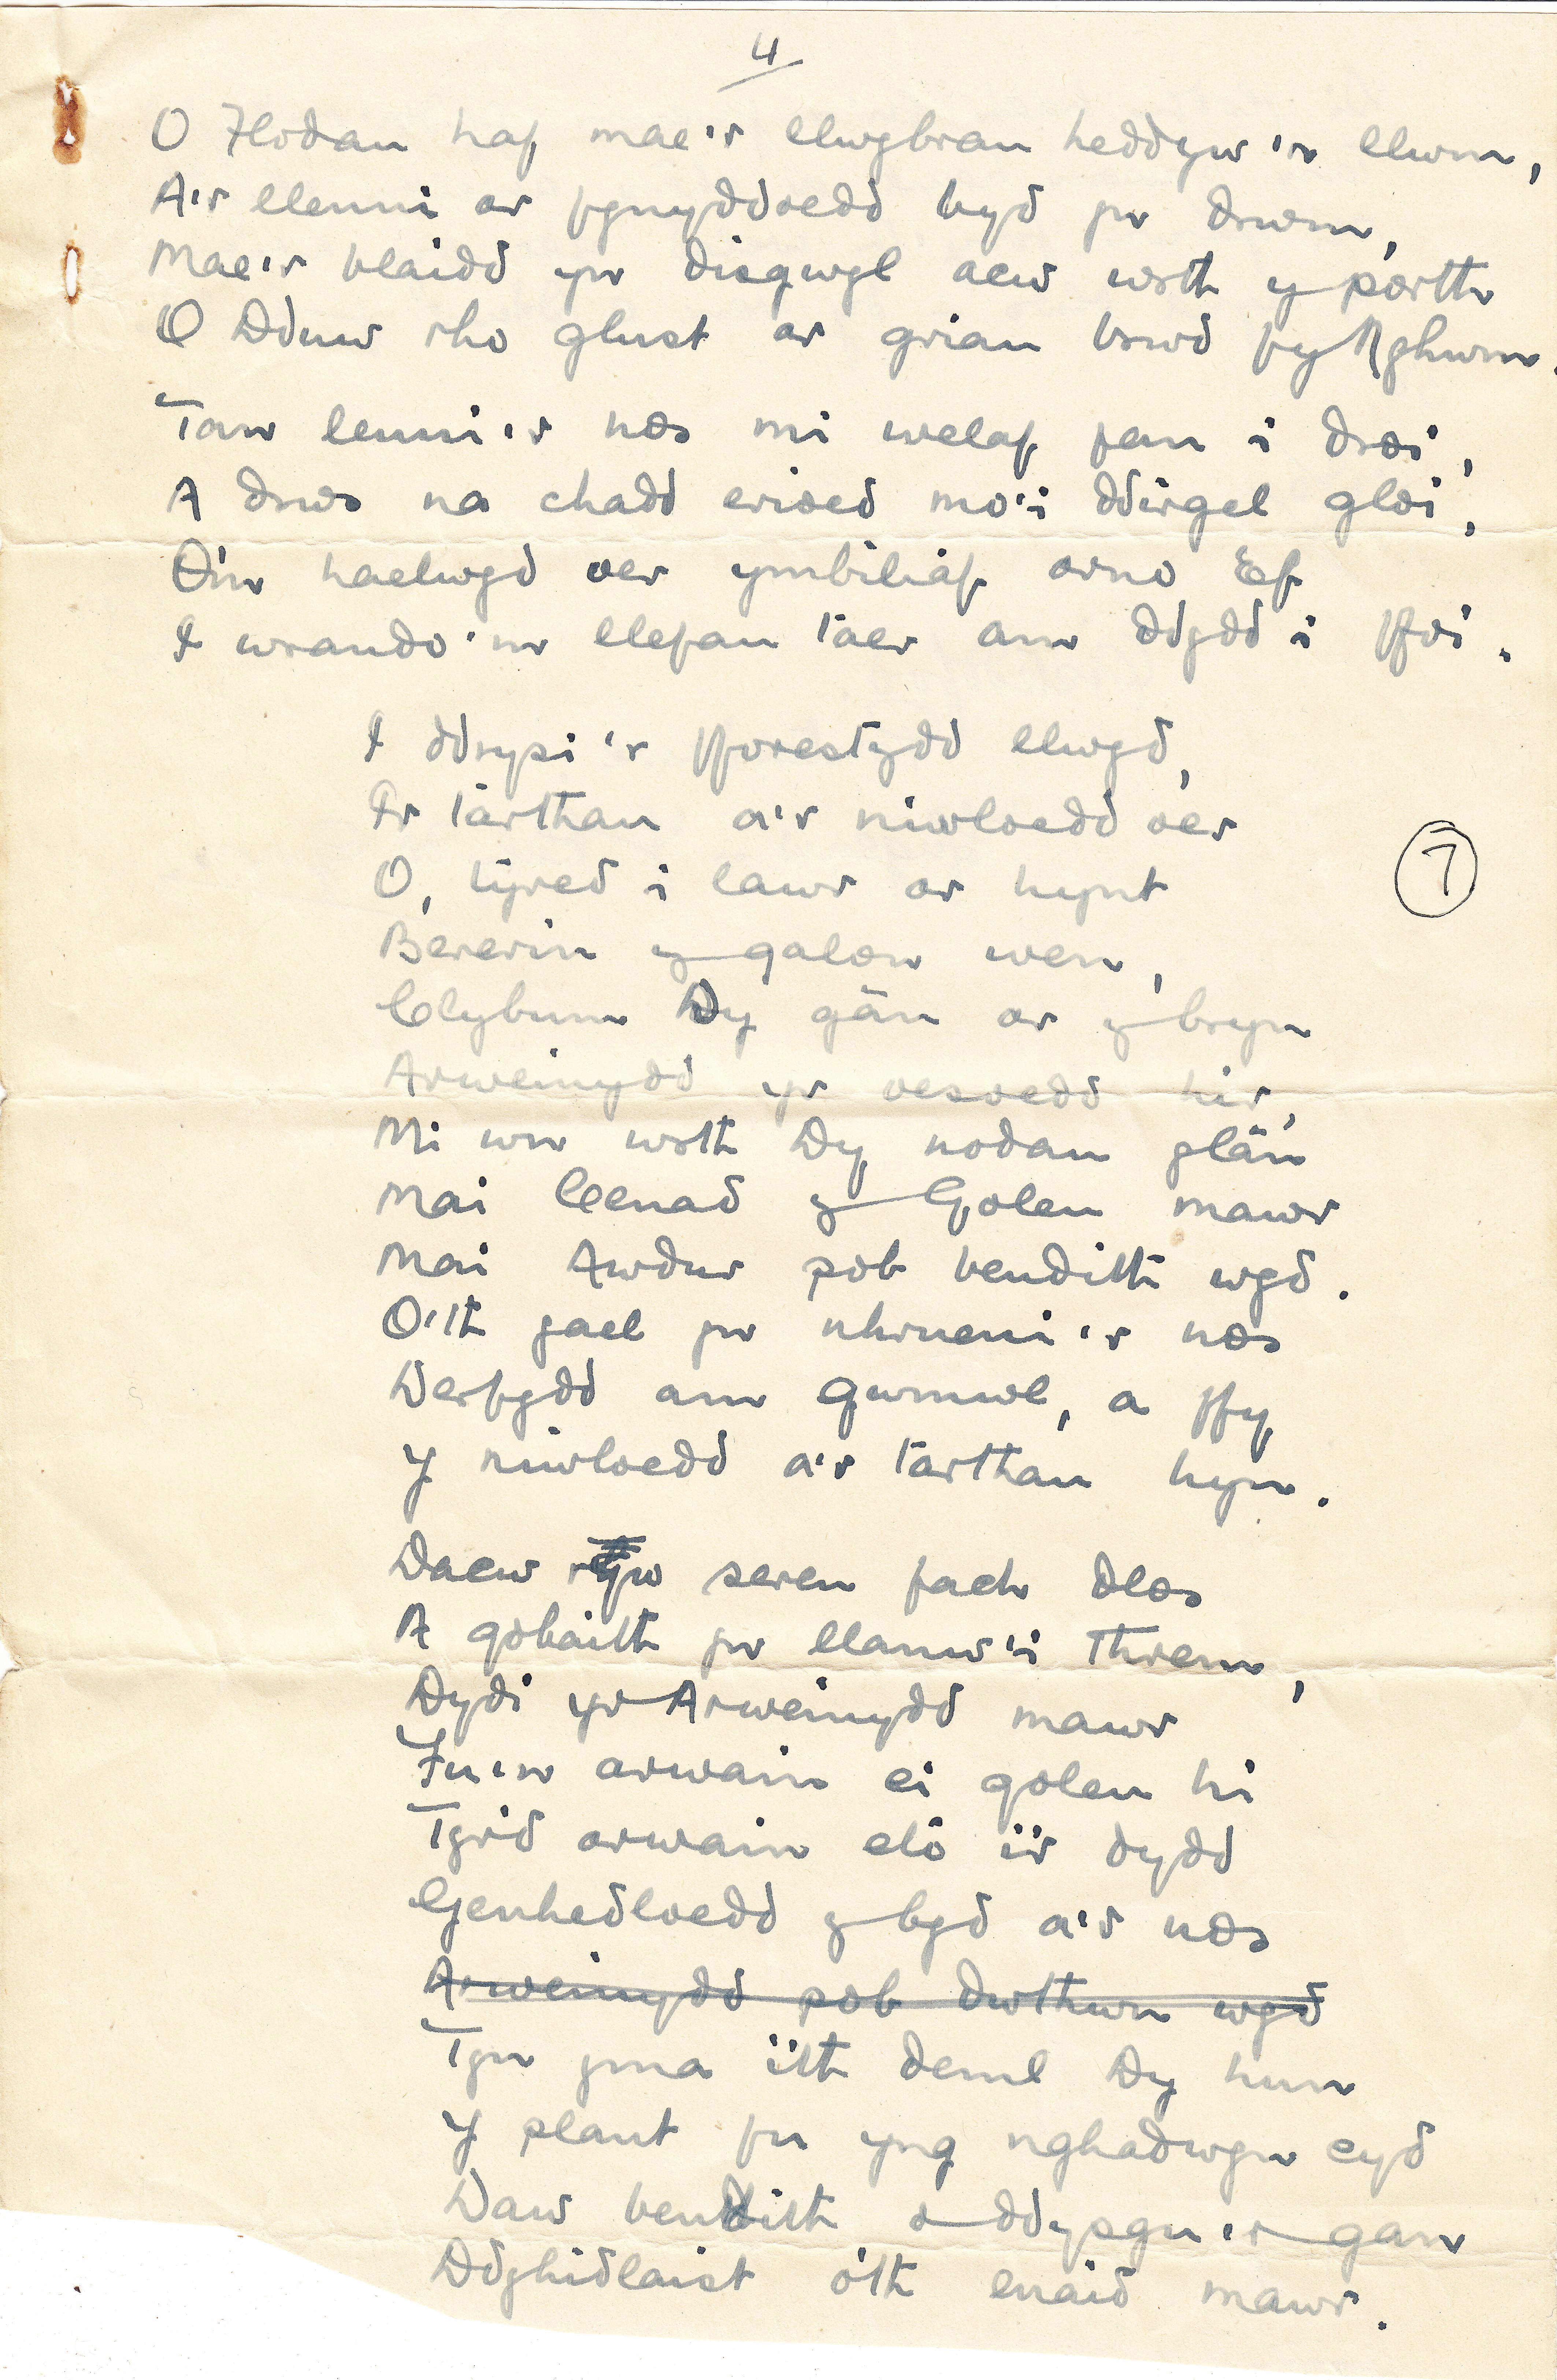 4
O Flodau haf mae'r llwybrau heddyw'n llwm,
A'r llenni ar fynyddoedd byd yn drwm,
Mae'r blaidd yn disgwyl acw wrth y porth
O Dduw rho glust ar grian brwd fy Nghwm.
Tan lenni'r nos mi welaf fan i droi,
A drws na chadd erioed mo'i ddirgel gloi,
O'm haelwyd oer ymbiliaf arno Ef
I wrando'm llefau taer am ddydd i ffoi.
I ddrysi'r fforestydd llwyd,
I'r tarthau a'r niwloedd oer
O, tyred i lawr ar hynt
Bererin y galon wen,
Clybum Dy gân ar y bryn
Arweinydd yr oesoedd hir,
Mi wn wrth Dy nodau glân
Mai Cenad y Goleu mawr
Mai Awdur pob bendith wyd.
O'th gael yn nhrueni'r nos
Derfydd am gwmwl, a ffy
Y niwloedd a'r tarthau hyn.
Daew rhyw seren fach dlos
A gobaith yn llanw'i threm,
Dydi yr Arweinydd mawr
Fu'n arwain ei goleu hi
Tyrd arwain elo i'r dydd
Genhedloedd y byd a'r nos
Arweinydd pob dwthwn wyd
Tyn yma i'th deml Dy hun
Y plant fu yng nghadwyn cyd
Daw bendith o ddysgu'r gan
Ddyhidlaist o'th enaid mawr.
7